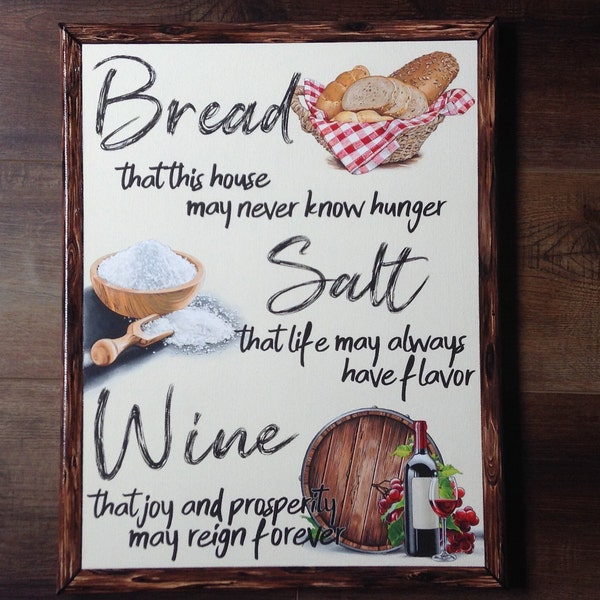 Bread
that this house
may never know hunger
Salt
that life may always
have flavor
Wine
that joy and prosperity
may reign forever